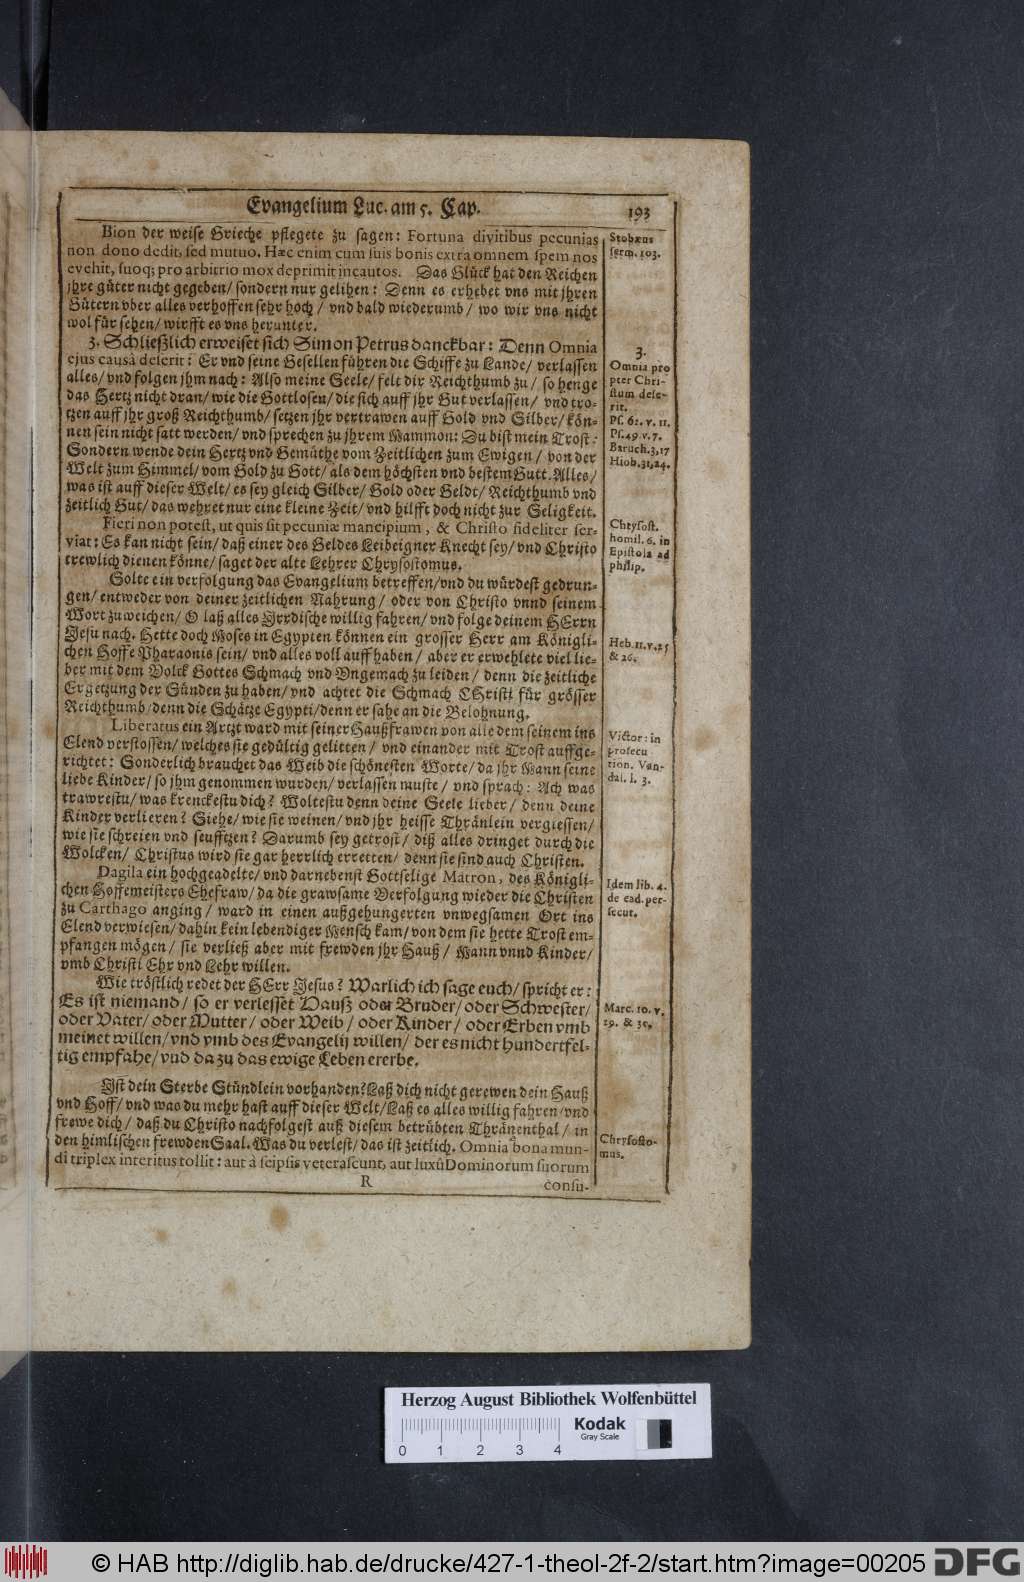 Evangelium Luc. am 5. Cap.
193
Bion der weise Grieche pflegete zu sagen: Fortuna divitibus pecunias
non dono dedit, sed mutuo. Hæc enim cum suis bonis extra omnem spem nos
evehit, suoq; pro arbitrio mox deprimit incautos. Das Glück hat den Reichen
jhre güter nicht gegeben/ sondern nur gelihen: Denn es erhebet vns mit jhren
Gütern vber alles verhoffen sehr hoch/ vnd bald wiederumb/ wo wir vns nicht
wol für sehen/ wirfft es vns herunter.
3. Schließlich erweiset sich Simon Petrus danckbar: Denn Omnia
ejus causâ deserit: Er vnd seine Gesellen führen die Schiffe zu Lande/ verlassen
alles/ vnd folgen jhm nach: Also meine Seele/ felt dir Reichthumb zu/ so henge
das Hertz nicht dran/ wie die Gottlosen/ die sich auff jhr Gut verlassen/ vnd tro-
tzen auff jhr groß Reichthumb/ setzen jhr vertrawen auff Gold vnd Silber/ kön-
nen sein nicht satt werden/ vnd sprechen zu jhrem Mammon: Du bist mein Trost:
Sondern wende dein Hertz vnd Gemüthe vom Zeitlichen zum Ewigen/ von der
Welt zum Himmel/ vom Gold zu Gott/ als dem höchsten vnd bestem Gutt. Alles/
was ist auff dieser Welt/ es sey gleich Silber/ Gold oder Geldt/ Reichthumb vnd
zeitlich Gut/ das wehret nur eine kleine Zeit/ vnd hilfft doch nicht zur Seligkeit.
Fieri non potest, ut quis sit pecuniæ mancipium, & Christo fideliter ser-
viat: Es kan nicht sein/ daß einer des Geldes Leibeigner Knecht sey/ vnd Christo
trewlich dienen könne/ saget der alte Lehrer Chrysostomus.
Solte ein verfolgung das Evangelium betreffen/ vnd du würdest gedrun-
gen/ entweder von deiner zeitlichen Nahrung/ oder von Christo vnnd seinem
Wort zu weichen/ O laß alles Irrdische willig fahren/ vnd folge deinem HErrn
Jesu nach. Hette doch Moses in Egypten können ein grosser Herr am Königli-
chen Hoffe Pharaonis sein/ vnd alles voll auff haben/ aber er erwehlete viel lie-
ber mit dem Volck Gottes Schmach vnd Vngemach zu leiden/ denn die zeitliche
Ergetzung der Sünden zu haben/ vnd achtet die Schmach Christi für grösser
Reichthumb/ denn die Schätze Egypti/ denn er sahe an die Belohnung.
Liberatus ein Artzt ward mit seiner Haußfrawen von alle dem seinem ins
Elend verstossen/ welches sie gedültig gelitten/ vnd einander mit Trost auffge-
richtet: Sonderlich brauchet das Weib die schönesten Worte/ da jhr Mann seine
liebe Kinder/ so jhm genommen wurden/ verlassen muste/ vnd sprach: Ach was
trawrestu/ was krenckestu dich? Woltestu denn deine Seele lieber/ denn deine
Kinder verlieren? Siehe/ wie sie weinen/ vnd jhr heisse Thränlein vergiessen/
wie sie schreien vnd seufftzen? Darumb sey getrost/ diß alles dringet durch die
Wolcken/ Christus wird sie gar herrlich erretten/ denn sie sind auch Christen.
Dagila ein hochgeadelte/ vnd darnebenst Gottselige Matron, des Königli-
chen Hoffemeisters Ehefraw/ da die grawsame Verfolgung wieder die Christen
zu Carthago anging/ ward in einen außgehungerten vnwegsamen Ort ins
Elend verwiesen/ dahin kein lebendiger Mensch kam/ von dem sie hette Trost em-
pfangen mögen/ sie verließ aber mit frewden jhr Hauß/ Mann vnnd Kinder/
vmb Christi Ehr vnd Lehr willen.
Wie tröstlich redet der HErr Jesus? Warlich ich sage euch/ spricht er:
Es ist niemand/ so er verlesset Hauß oder Bruder/ oder Schwester/
oder Vater/ oder Mutter/ oder Weib/ oder Kinder/ oder Erben vmb
meinet willen/ vnd vmb des Evangelij willen/ der es nicht hundertfel-
tig empfahe/ vnd da zu das ewige Leben ererbe.
Ist dein Sterbe Stündlein vorhanden? Laß dich nicht gerewen dein Hauß
vnd Hoff/ vnd was du mehr hast auff dieser Welt/ Laß es alles willig fahren/ vnd
frewe dich/ daß du Christo nachfolgest auß diesem betrübten Thränenthal/ in
den himlischen frewden Saal. Was du verlest/ das ist zeitlich. Omnia bona mun-
di triplex interitus tollit: aut à seipsis veterascunt, aut luxû Dominorum suorum
R
consu-
Stobæus
serm. 103.
3.
Omnia pro
pter Chri-
stum dese-
rit.
Ps. 62. v. 11.
Ps. 49. v. 7.
Baruch. 3, 17
Hiob. 31, 24.
Chrysost.
homil. 6. in
Epistola ad
philip.
Heb. 11. v. 25
& 26.
Victor: in
prosecu
tion. Van-
dal. l. 3.
Idem lib. 4.
de ead. per-
secut.
Marc. 10. v.
29. & 30.
Chrysosto-
mus.
Herzog August Bibliothek Wolfenbüttel
Kodak
Gray Scale
0 1 2 3 4
© HAB http://diglib.hab.de/drucke/427-1-theol-2f-2/start.htm?image=00205
DFG